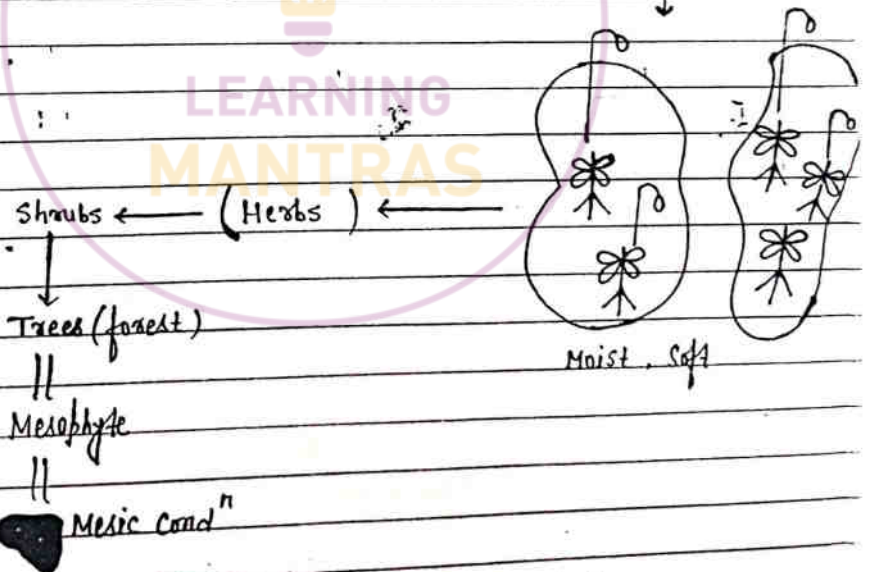 LEARNING
MANTRAS
Shrubs ← (Herbs) ←
Trees (forest)
||
Mesophyte
||
Mesic Condⁿ
Moist, Soft